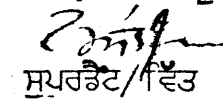 ਸੁਪਰਡੈਂਟ/ਵਿੱਤ